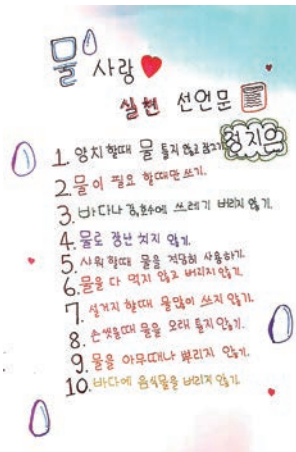 물 사랑
실천 선언문
정지은
1. 양치 할때 물 틀지 않고 잠그기
2. 물이 필요 할때만 쓰기.
3. 바다나 강,호수에 쓰레기 버리지 않기.
4. 물로 장난 치지 않기.
5. 샤워 할때 물을 적당히 사용하기.
6. 물을 다 먹지 않고 버리지 않기.
7. 설거지 할때 물많이 쓰지 않기.
8. 손씻을때 물을 오래 틀지 않기.
9. 물을 아무때나 뿌리지 않기.
10. 바다에 음식물을 버리지 않기.